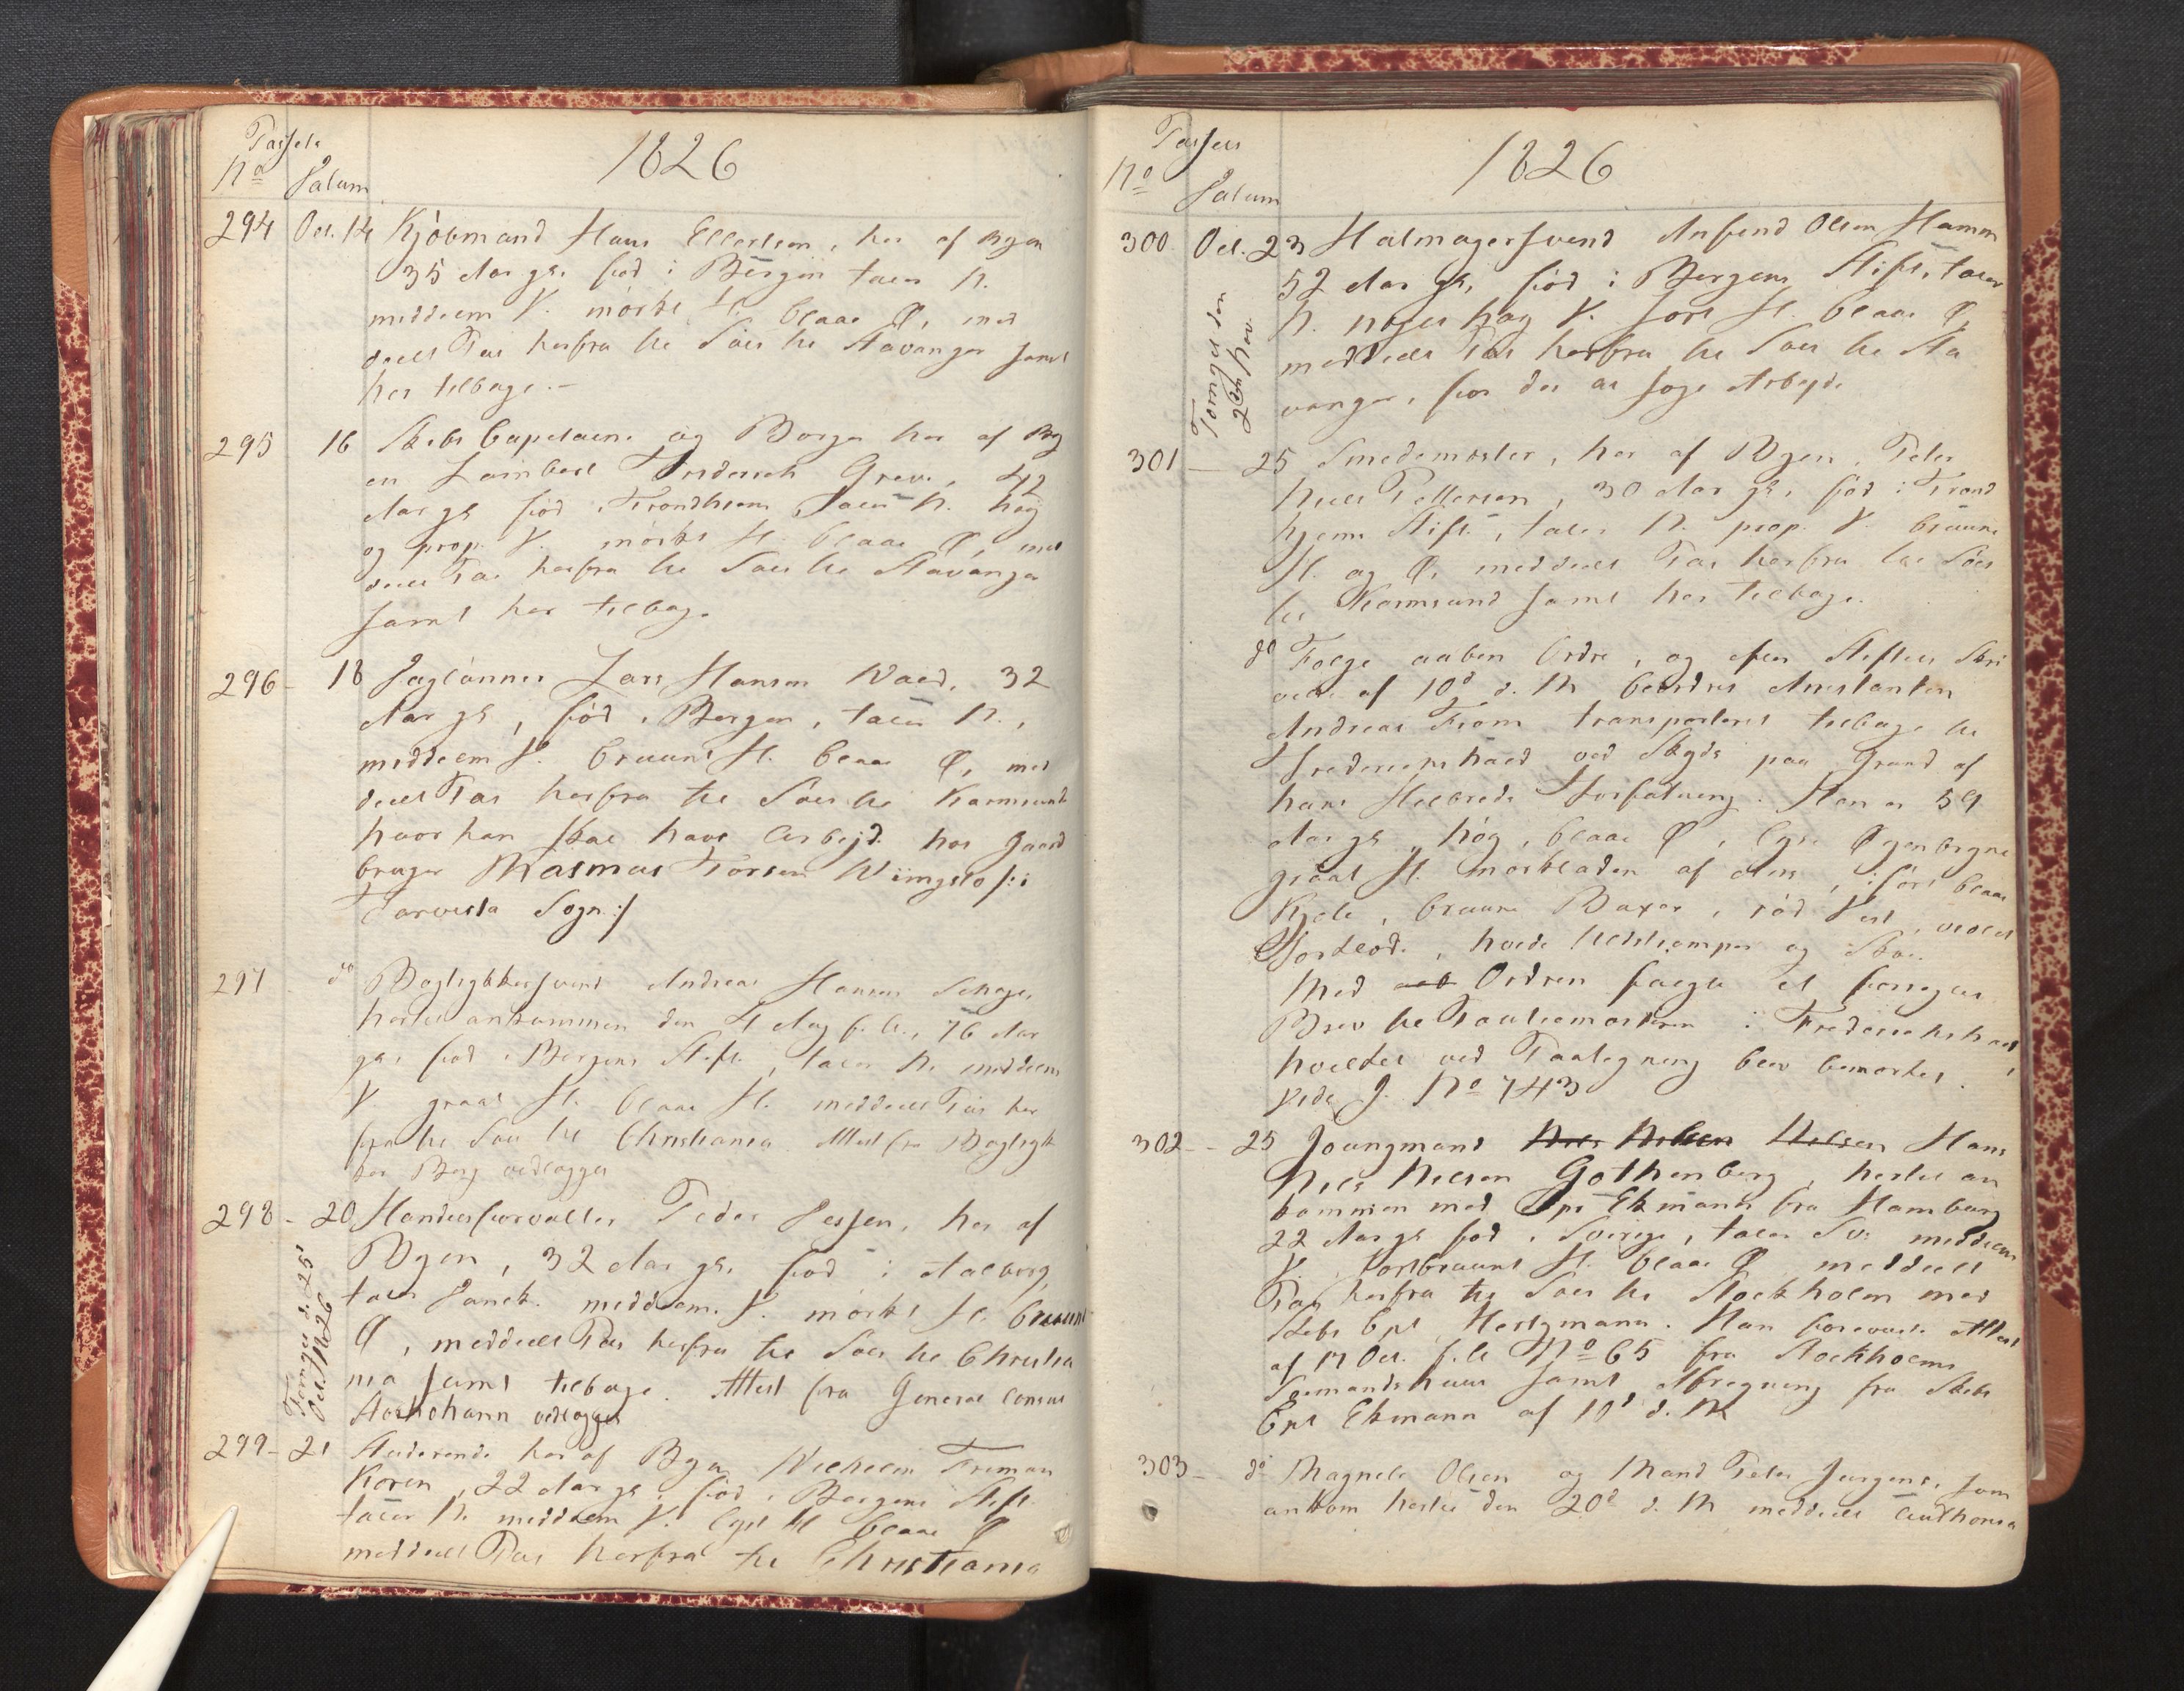 Passets
No Datum
1826
294 Oct. 14 Kjöbmand Hans Ellertsen, her af Byen
35 Aar gl. fød i Bergen taler N.
middelm V. mörkt H. blaae Ø, med
deelt Pas herfra til Söes til Stavanger samt
her tilbage.-
295 16 Skibs Capitaine og Borger her af By
en Lambert Friderich Greve, 42
Aar gl fød i Trondhiem taler N. høy
og prop. V. mörkt H. blaae Ø, med
deelt Pas herfra til Söes til Stavanger
samt her tilbage
296 - 18 Daglönner Lars Hansen Waed, 32
Aar gl, fød i Bergen, taler N.,
middelm V. bruunt H. blaae Ø, med
deelt Pas herfra til Söes til Karmsund
hvor han skal have Arbejde hos Gaard
bruger Rasmus Torsen Wiingslo /: i
Torvesta Sogn :/
297 do Bogtrykkersvend Andreas Hansen
hertil ankommen den 4 Aug f. A., 76 Aar
gl. fød i Bergens Stift, taler N. middelm
V. graat H. blaae H. meddeelt Pas her
fra til Söes til Christiania Attest fra Bogtryk
ker Berg vedlægges
298 - 20 Handelsforvalter Peder Jessen, her af
Byen, 32 Aar gl. fød i Aalborg,
taler Dansk. middelm. V. mörkt H. bruune
Ø, meddeelt Pas herfra til Söes til Christia
nia samt tilbage. Attest fra General Consul
vedlægges
Fornyet d. 25
Oct. 1826
299 - 21 Studerende her af Byen Wilhelm Friman
Koren, 22 Aar gl. fød i Bergens Stift.
taler N. middelm V. lyst H blaae Ø
meddeelt Pas herfra til Christiania
Passets
No Datum
1826
300 Oct. 23 Halmagersvend Anfind Olsen Hamm
52 Aar gl, fød i Bergens Stift, taler
N. noget høy V. sort H. blaae Ø,
meddeelt Pas herfra til Söes til Sta
vanger, for der at søge Arbejde
Fornyet den
2den Nov.
301 - 25 Smedemester, her af Byen, Peter
Niels Pettersen, 30 Aar gl. fød i Trond
hjems Stift, taler N. prop. V. bruune
H. og Ø, meddeelt Pas herfra til Söes
til Karmsund samt her tilbage.
do Følge aaben Ordre, og efter Stiftets Skri
velse af 10d d. M beordres Arrestanten
Andreas From transporteret tilbage til
Friderichshald ved Skyds paa Grund af
hans Helbreds Forfatning. Han er 59
Aar gl, høy, blaae Ø, lyse Øyenbryne
graat H. mørkladen af Ans, iført blaae
Kjole, bruune Buxer, rød Vest,
, hvide Uldstrømper og Skoe.
Med Ordren fulgte et forseglet
Brev til Politiemesteren i Friderichshald,
hvilket ved Paategning blev bemærket.
Vide J. No 743
302 - 25 Joungmand Niels Nielsen Nielsen Hans
Niels Nielsen Gothenberg, hertil an
kommen med Cpt Ekmann fra Hamburg
22 Aar gl fød i Sverige, taler Sv. middelm
V. sortbruunt H. blaae Ø meddeelt
Pas herfra til Söes til Stockholm med
Skibs Cpt Hertzmann. Han foreviste Attest
af 17 Oct. f. A No 65 fra Stockholms
Sömandshuus samt Afregning fra Skibs
Cpt Ekmann af 19d d. M
303 - do Magnele Olsen og Mand Peter Jurgens, som
ankom hertil den 20d d. M meddeelt Authorisa